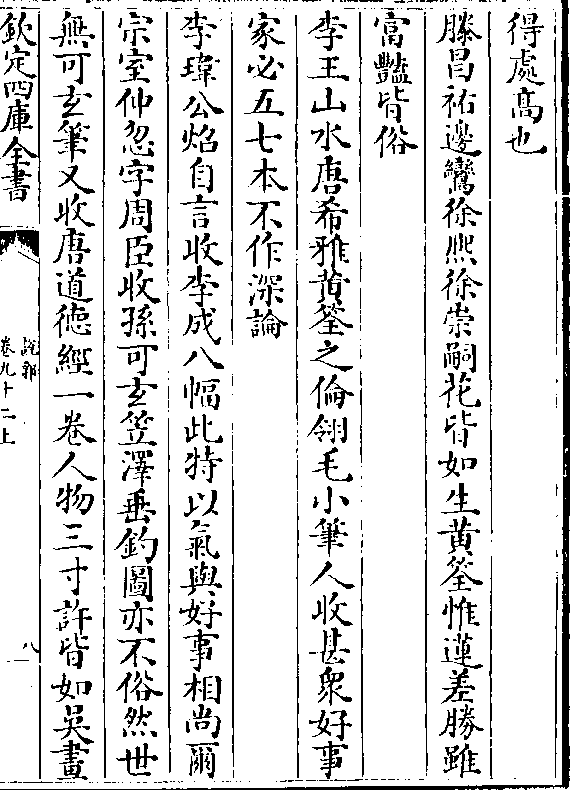 得處髙也
滕昌祐邊鸞徐熙徐崇嗣花皆如生黄筌惟蓮差勝雖
富豔皆俗
李王山水唐希雅黄筌之倫翎毛小筆人收甚衆好事
家必五七本不作深論
李瑋公炤自言收李成八幅此特以氣與好事相尚爾
宗室仲忽字周臣收孫可玄笠澤垂釣圖亦不俗然世
無可玄筆又收唐道德經一卷人物三寸許皆如吴畫
欽定四庫全書
説郛
卷九十二上
八